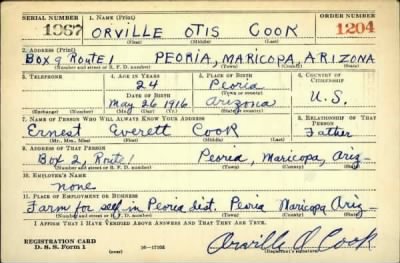 SERIAL NUMBER 1. NAME (Print) ORDER NUMBER
1967 ORVILLE OTIS COOK 1204
(First) (Middle) (Last)
2. ADDRESS (Print)
Box 9 Route 1 PEORIA, MARICOPA ARIZONA
(Number and street or R. F. D. number) (Town) (County) (State)
3. TELEPHONE 4. AGE IN YEARS 5. PLACE OF BIRTH 6. COUNTRY OF CITIZENSHIP
24 Peoria
DATE OF BIRTH (Town or county)
May 26 1916 Arizona U.S.
(Exchange) (Number) (Mo.) (Day) (Yr.) (State or country)
7. NAME OF PERSON WHO WILL ALWAYS KNOW YOUR ADDRESS 8. RELATIONSHIP OF THAT PERSON
Ernest Everett Cook Father
(Mr., Mrs., Miss) (First) (Middle) (Last)
9. ADDRESS OF THAT PERSON
Box 2, Route 1 Peoria, Maricopa, Ariz
(Number and street or R. F. D. number) (Town) (County) (State)
10. EMPLOYER'S NAME
none
11. PLACE OF EMPLOYMENT OR BUSINESS
Farm for self in Peoria dist. Peoria Maricopa Ariz
(Number and street or R. F. D. number) (Town) (County) (State)
I AFFIRM THAT I HAVE VERIFIED ABOVE ANSWERS AND THAT THEY ARE TRUE.
REGISTRATION CARD
D. S. S. Form 1 (over) Orville O. Cook